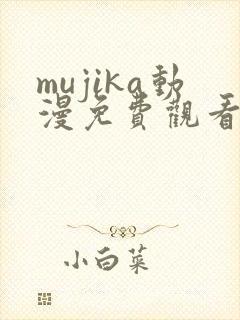 mujika動
漫免費觀看
小白菜